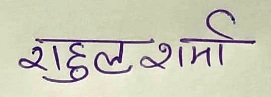 राहुल शर्मा